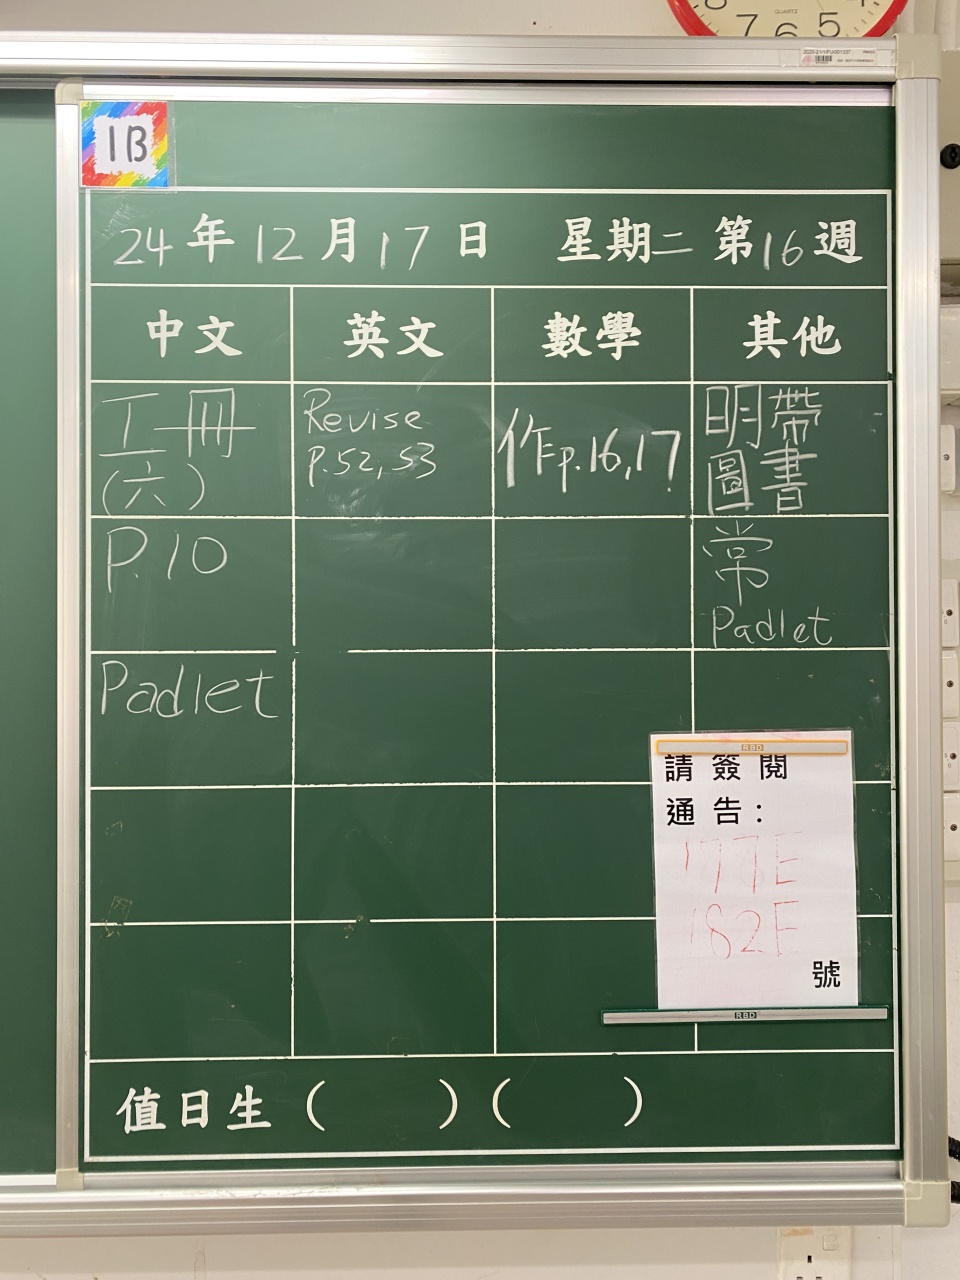 7 6 5
QUARTZ
1B
24年12月17日 星期二 第16週
中文 英文 數學 其他
工一冊
(六)
Revise
P.52, 53
作p.16,17
明帶
圖書
P.10
常
Padlet
Padlet
RBD
請簽閱
通告:
177E
182E
號
RBD
值日生( )( )